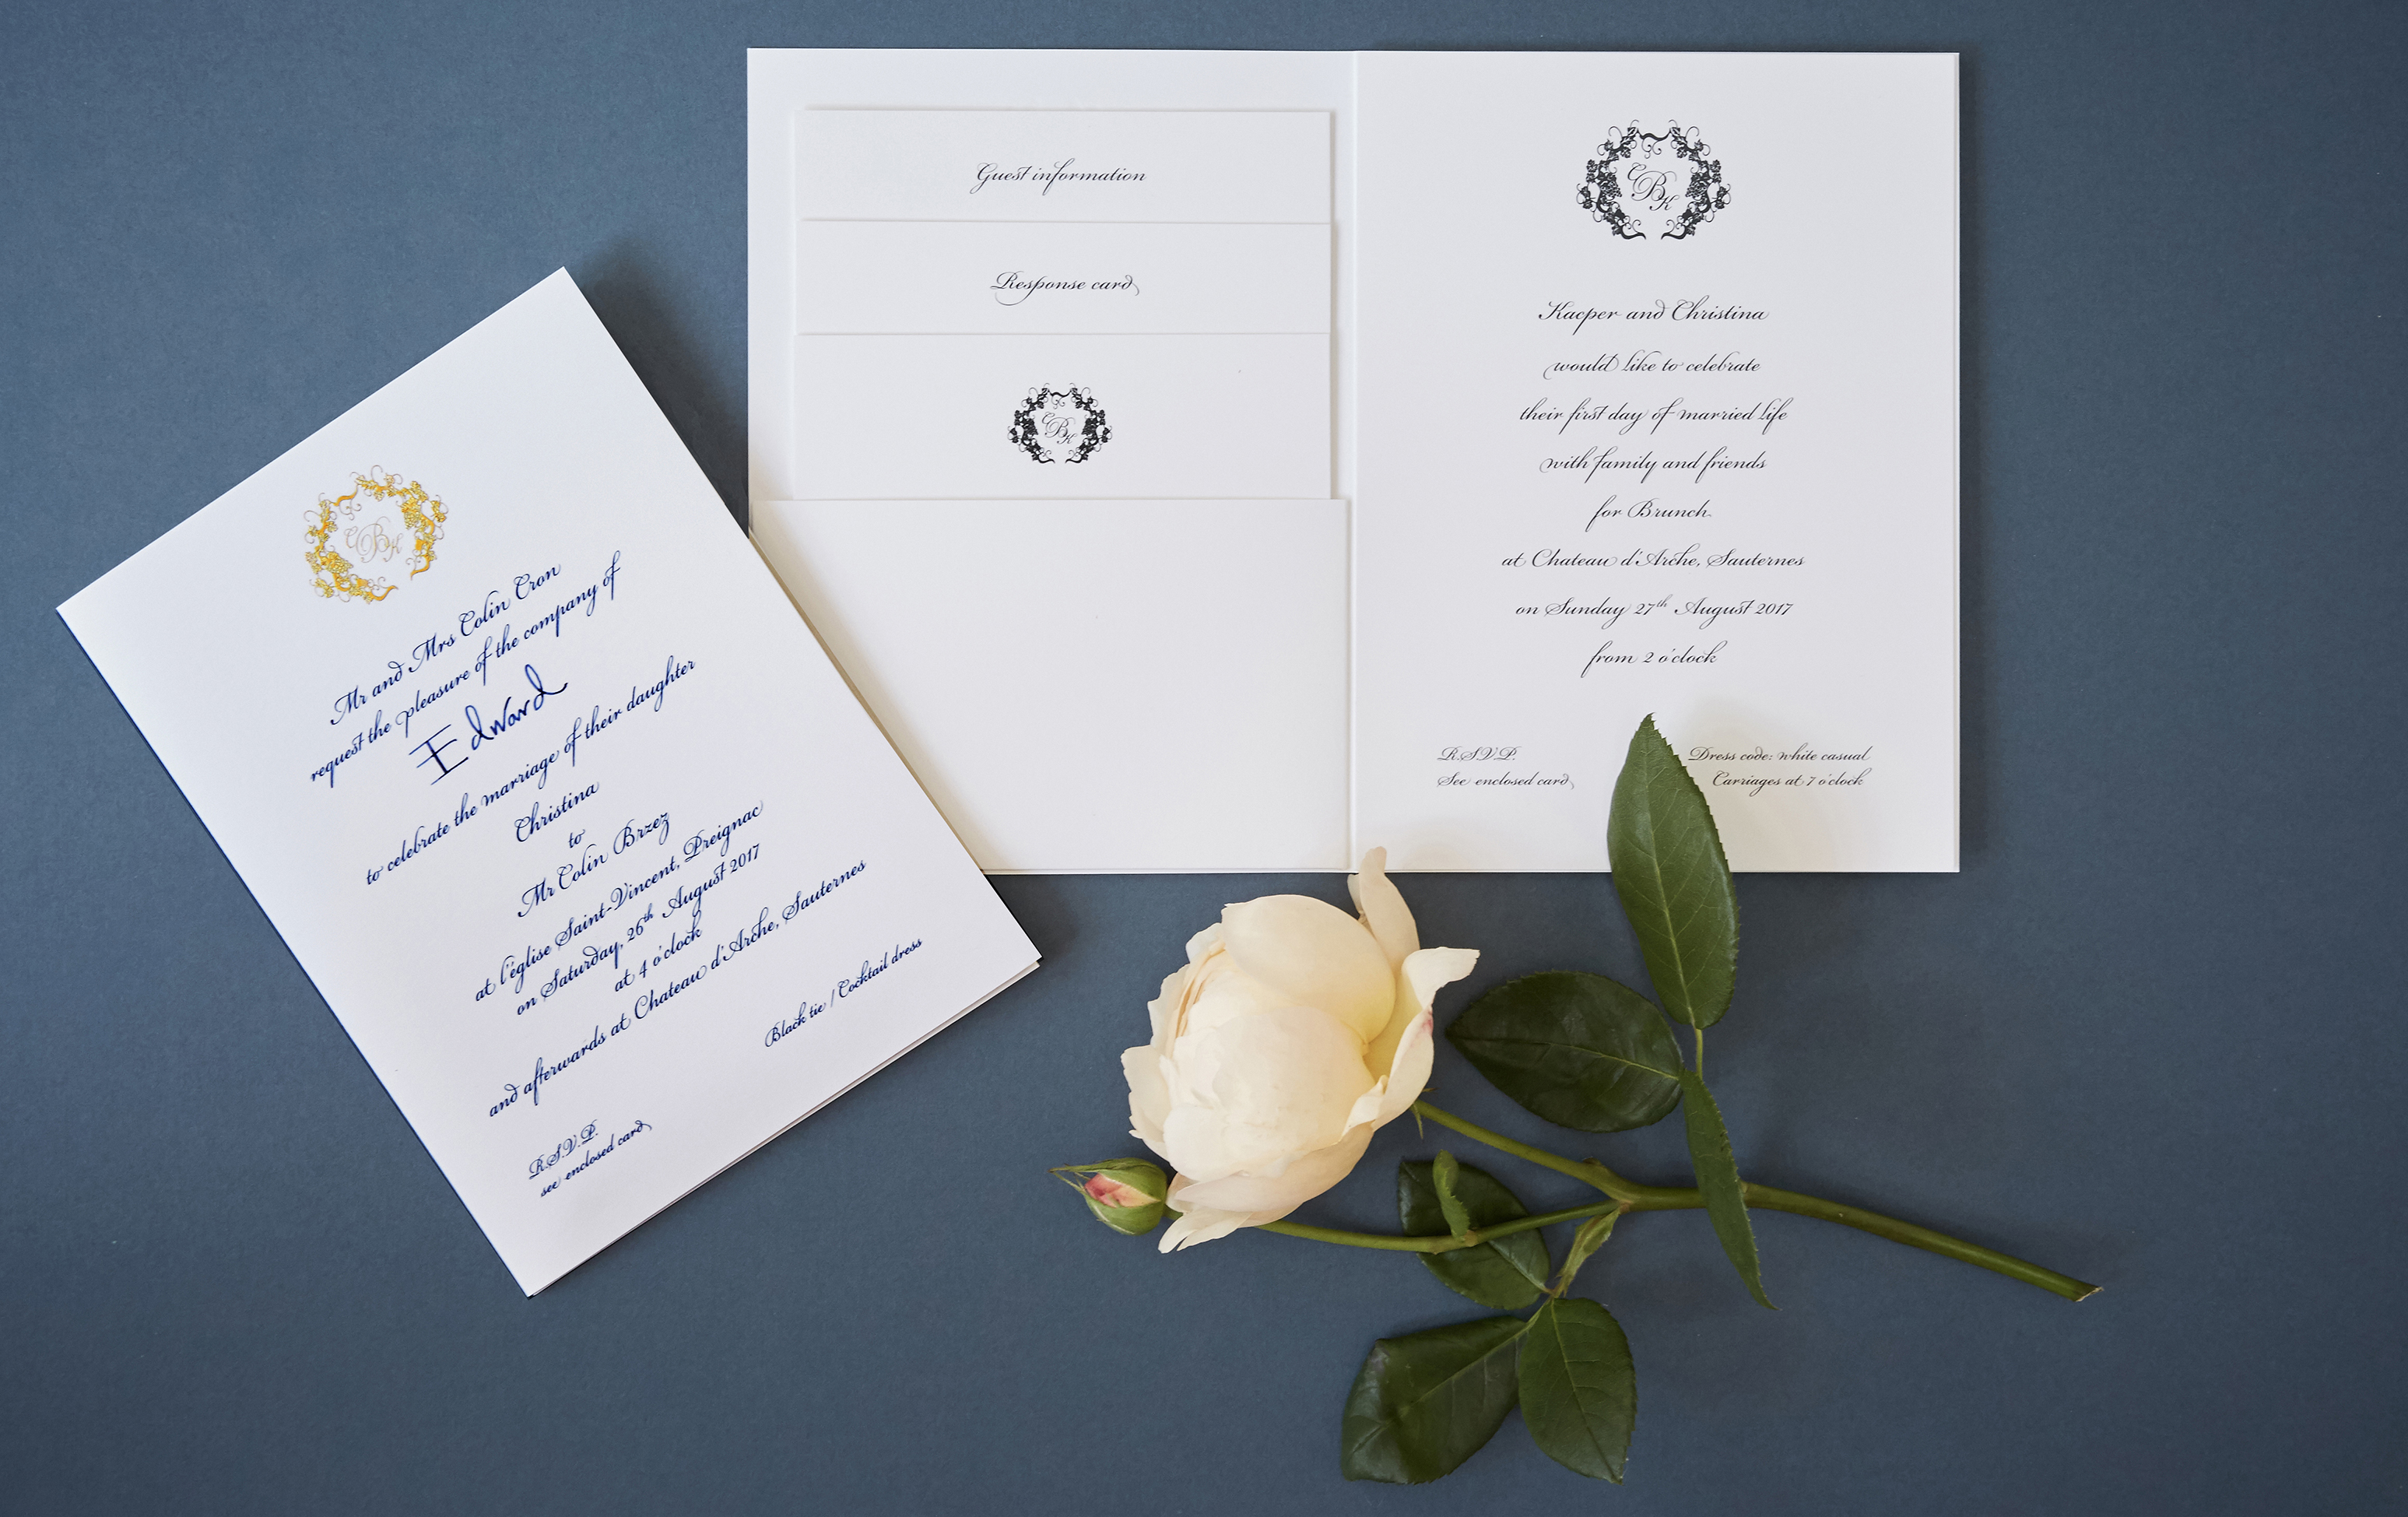 CBK
Mr and Mrs Colin Cron
request the pleasure of the company of
Edward
to celebrate the marriage of their daughter
Christina
to
Mr Colin Brzez
at l'église Saint-Vincent, Preignac
on Saturday, 26th August 2017
at 4 o'clock
and afterwards at Chateau d'Arche, Sauternes
Black tie / Cocktail dress
R.S.V.P.
see enclosed card
Guest information
Response card
CBK
CBK
Kacper and Christina
would like to celebrate
their first day of married life
with family and friends
for Brunch
at Chateau d'Arche, Sauternes
on Sunday 27th August 2017
from 2 o'clock
R.S.V.P.
See enclosed card
Dress code: white casual
Carriages at 7 o'clock